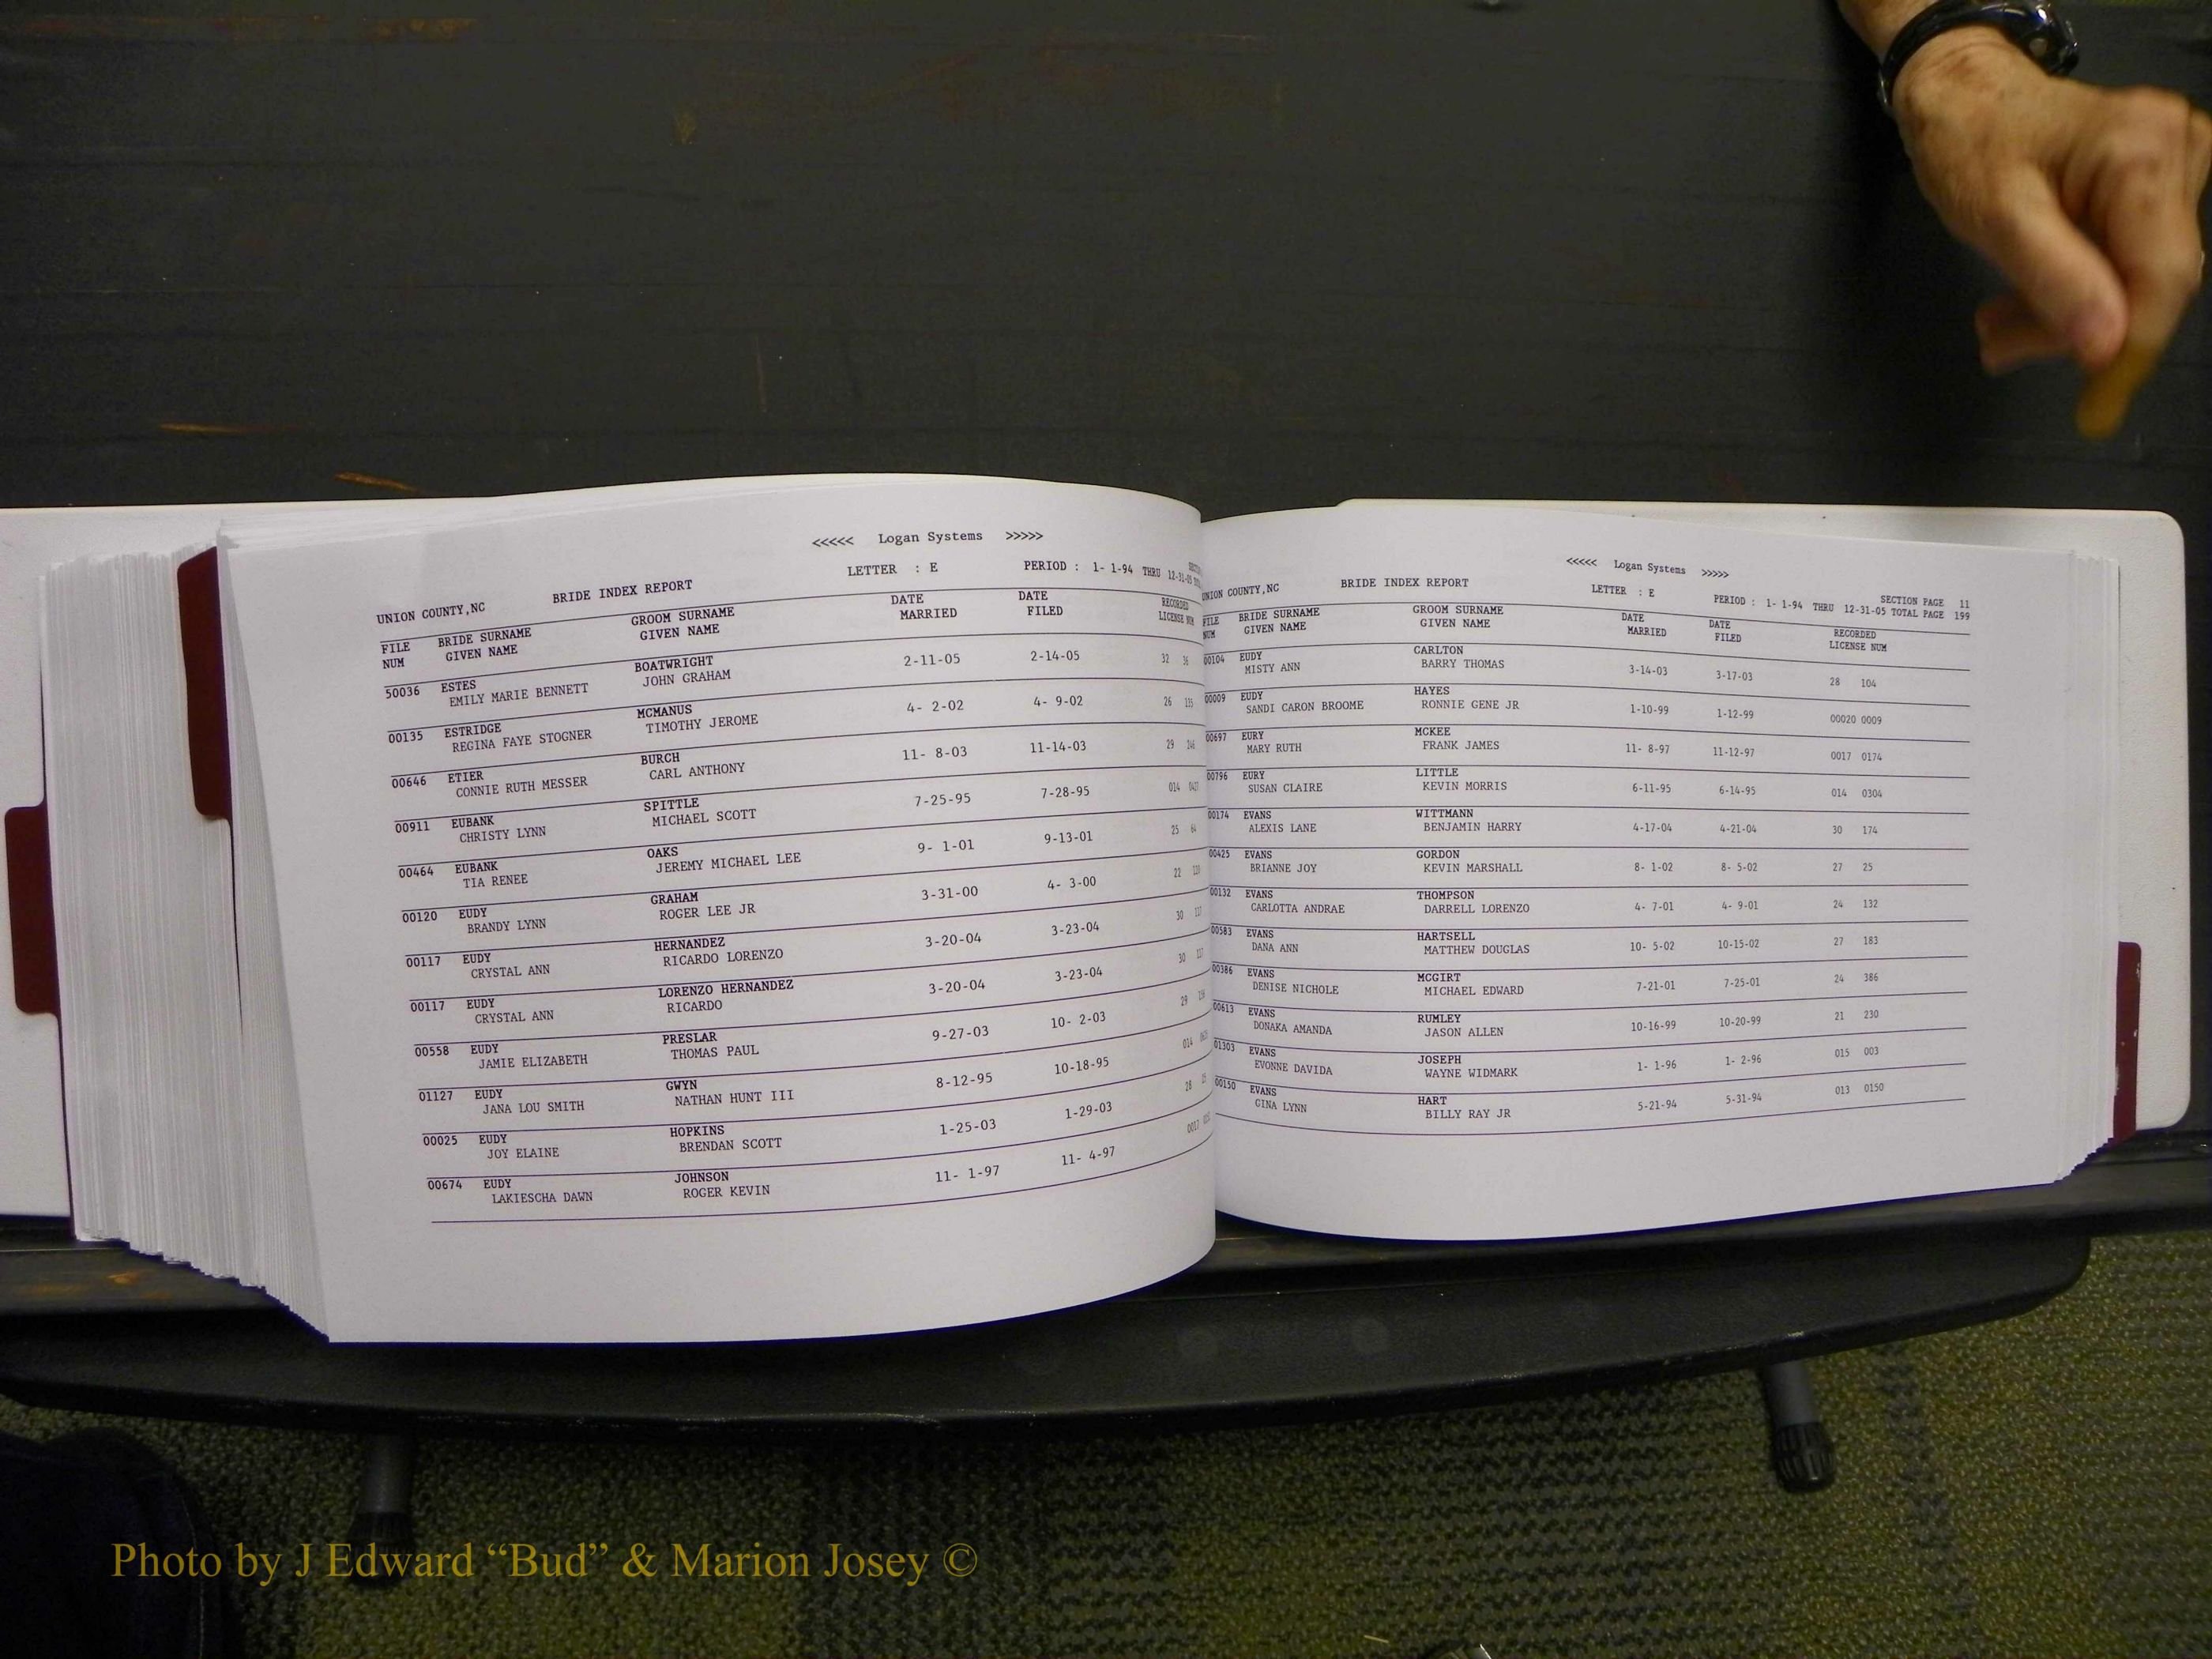 <<<<< Logan Systems >>>>>
UNION COUNTY,NC BRIDE INDEX REPORT LETTER : E PERIOD : 1- 1-94 THRU 12-31-05
FILE BRIDE SURNAME GROOM SURNAME DATE DATE RECORDED
NUM GIVEN NAME GIVEN NAME MARRIED FILED LICENSE NUM
50036 ESTES BOATWRIGHT 2-11-05 2-14-05 32 36
EMILY MARIE BENNETT JOHN GRAHAM
00135 ESTRIDGE MCMANUS 4- 2-02 4- 9-02 26 135
REGINA FAYE STOGNER TIMOTHY JEROME
00646 ETIER BURCH 11- 8-03 11-14-03 29
CONNIE RUTH MESSER CARL ANTHONY
00911 EUBANK SPITTLE 7-25-95 7-28-95 014
CHRISTY LYNN MICHAEL SCOTT
00464 EUBANK OAKS 9- 1-01 9-13-01 25
TIA RENEE JEREMY MICHAEL LEE
00120 EUDY GRAHAM 3-31-00 4- 3-00 22
BRANDY LYNN ROGER LEE JR
00117 EUDY HERNANDEZ 3-20-04 3-23-04 30
CRYSTAL ANN RICARDO LORENZO
00117 EUDY LORENZO HERNANDEZ 3-20-04 3-23-04 30
CRYSTAL ANN RICARDO
00558 EUDY PRESLAR 9-27-03 10- 2-03 29
JAMIE ELIZABETH THOMAS PAUL
01127 EUDY GWYN 8-12-95 10-18-95 014
JANA LOU SMITH NATHAN HUNT III
00025 EUDY HOPKINS 1-25-03 1-29-03 28
JOY ELAINE BRENDAN SCOTT
00674 EUDY JOHNSON 11- 1-97 11- 4-97 0017
LAKIESCHA DAWN ROGER KEVIN
<<<<< Logan Systems >>>>>
UNION COUNTY,NC BRIDE INDEX REPORT LETTER : E SECTION PAGE 11
PERIOD : 1- 1-94 THRU 12-31-05 TOTAL PAGE 199
FILE BRIDE SURNAME GROOM SURNAME DATE DATE RECORDED
NUM GIVEN NAME GIVEN NAME MARRIED FILED LICENSE NUM
00104 EUDY CARLTON 3-14-03 3-17-03 28 104
MISTY ANN BARRY THOMAS
00009 EUDY HAYES 1-10-99 1-12-99 00020 0009
SANDI CARON BROOME RONNIE GENE JR
00697 EURY MCKEE 11- 8-97 11-12-97 0017 0174
MARY RUTH FRANK JAMES
00796 EURY LITTLE 6-11-95 6-14-95 014 0304
SUSAN CLAIRE KEVIN MORRIS
00174 EVANS WITTMANN 4-17-04 4-21-04 30 174
ALEXIS LANE BENJAMIN HARRY
00425 EVANS GORDON 8- 1-02 8- 5-02 27 25
BRIANNE JOY KEVIN MARSHALL
00132 EVANS THOMPSON 4- 7-01 4- 9-01 24 132
CARLOTTA ANDRAE DARRELL LORENZO
00583 EVANS HARTSELL 10- 5-02 10-15-02 27 183
DANA ANN MATTHEW DOUGLAS
00386 EVANS MCGIRT 7-21-01 7-25-01 24 386
DENISE NICHOLE MICHAEL EDWARD
00613 EVANS RUMLEY 10-16-99 10-20-99 21 230
DONAKA AMANDA JASON ALLEN
01303 EVANS JOSEPH 1- 1-96 1- 2-96 015 003
EVONNE DAVIDA WAYNE WIDMARK
00150 EVANS HART 5-21-94 5-31-94 013 0150
GINA LYNN BILLY RAY JR
Photo by J Edward “Bud” & Marion Josey ©